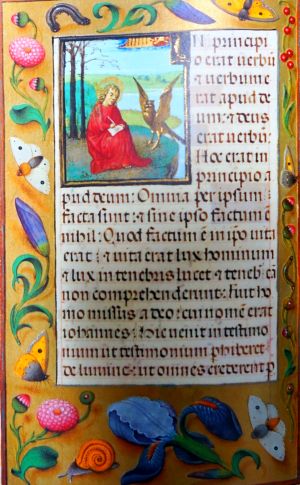 N principi
o erat uerbū
⁊ uerbum e
rat apud de
um: ⁊ deus
erat uerbū:
Hoc erat in
principio a
pud deum: Omnia per ipsum
facta sunt: ⁊ sine ipso factum ē
nihil: Quod factum ē in ip̄o uita
erat: ⁊ uita erat lux hominum
⁊ lux in tenebris lucet ⁊ teneb̄ eā
non comprehenderunt: Fuit ho
mo missus a deo: cui nomē erat
iohannes: Hic uenit in testimo
nium ut testimonium phiberet
de lumine: ut omnes crederent p